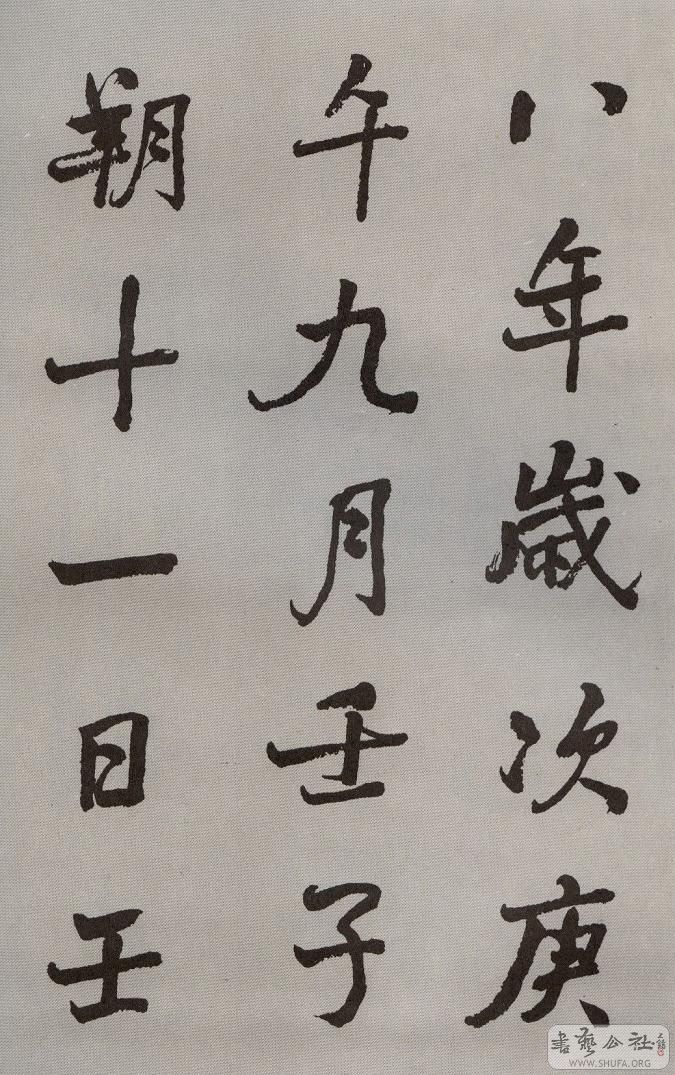 八年歲次庚
午九月壬子
朔十一日壬
書藝公社
WWW.SHUFA.ORG